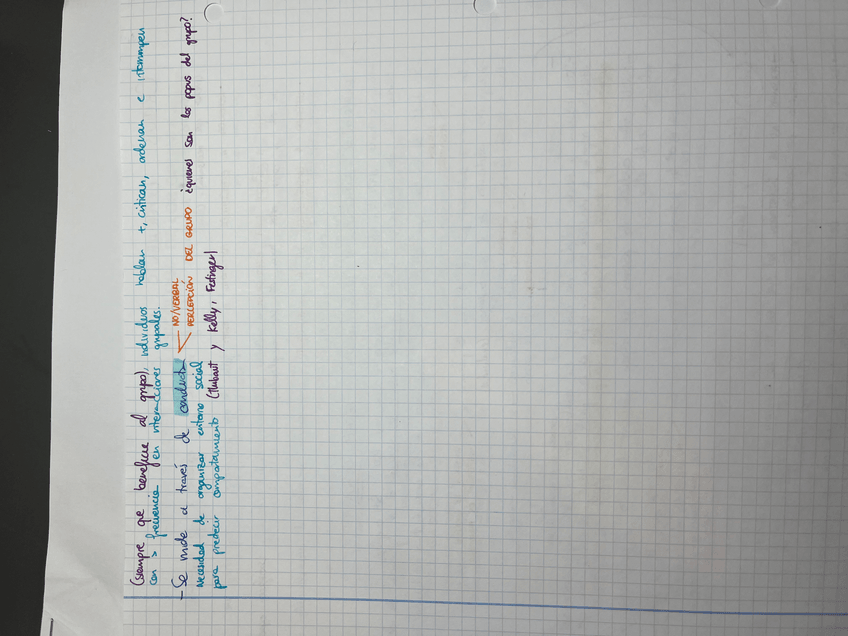 (siempre que beneficie al grupo), individuos hablan +, critican, ordenan e interrumpen
con > frecuencia en interacciones grupales.
- Se mide a través de conducta
NO/VERBAL
PERCEPCIÓN DEL GRUPO ¿quienes son los popus del grupo?
Necesidad de organizar entorno social
para predecir comportamiento (Thibaut y Kelly, Festinger)